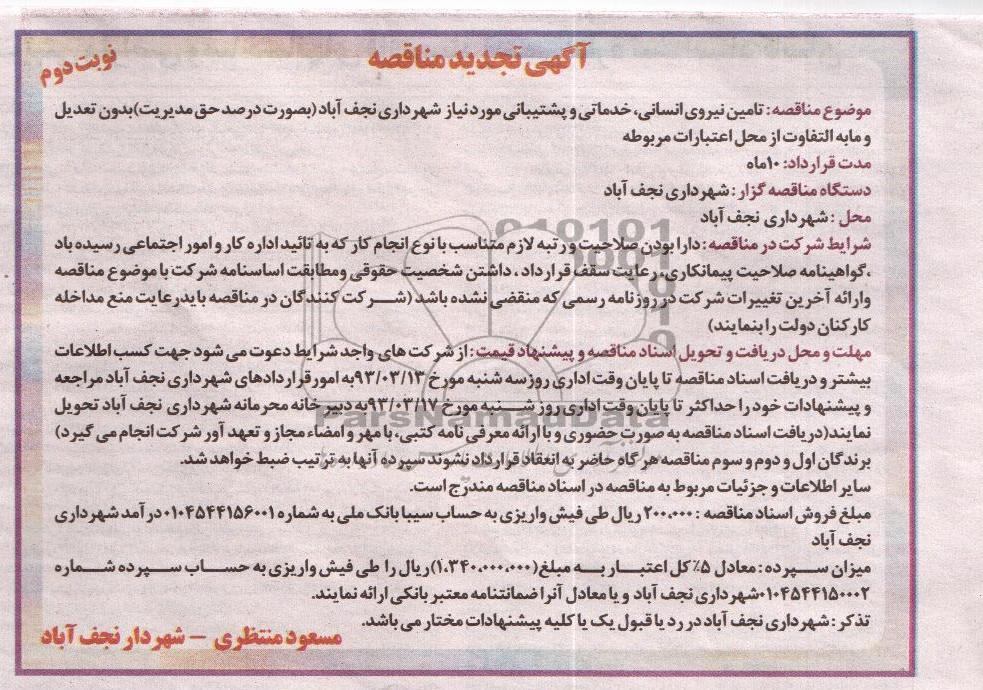 آگهی تجدید مناقصه
نوبت دوم
موضوع مناقصه : تامین نیروی انسانی، خدماتی و پشتیبانی مورد نیاز شهرداری نجف آباد (بصورت درصد حق مدیریت)بدون تعدیل
و مابه التفاوت از محل اعتبارات مربوطه
مدت قرارداد: ۱۰ماه
دستگاه مناقصه گزار : شهرداری نجف آباد
محل : شهرداری نجف آباد
شرایط شرکت در مناقصه : دارا بودن صلاحیت و رتبه لازم متناسب با نوع انجام کار که به تائید اداره کار و امور اجتماعی رسیده باد
،گواهینامه صلاحیت پیمانکاری، رعایت سقف قرارداد ، داشتن شخصیت حقوقی ومطابقت اساسنامه شرکت با موضوع مناقصه
وارائه آخرین تغییرات شرکت در روزنامه رسمی که منقضی نشده باشد (شرکت کنندگان در مناقصه باید رعایت منع مداخله
کارکنان دولت را بنمایند)
مهلت و محل دریافت و تحویل اسناد مناقصه و پیشنهاد قیمت : از شرکت های واجد شرایط دعوت می شود جهت کسب اطلاعات
بیشتر و دریافت اسناد مناقصه تا پایان وقت اداری روز سه شنبه مورخ ۹۳/۰۳/۱۳به امور قراردادهای شهرداری نجف آباد مراجعه
و پیشنهادات خود را حداکثر تا پایان وقت اداری روز شنبه مورخ ۹۳/۰۳/۱۷به دبیرخانه محرمانه شهرداری نجف آباد تحویل
نمایند(دریافت اسناد مناقصه به صورت حضوری و با ارائه معرفی نامه کتبی، با مهر و امضاء مجاز و تعهد آور شرکت انجام می گیرد)
برندگان اول و دوم و سوم مناقصه هر گاه حاضر به انعقاد قرارداد نشوند سپرده آنها به ترتیب ضبط خواهد شد.
سایر اطلاعات و جزئیات مربوط به مناقصه در اسناد مناقصه مندرج است.
مبلغ فروش اسناد مناقصه : ۲۰۰،۰۰۰ ریال طی فیش واریزی به حساب سیبا بانک ملی به شماره ۰۱۰۴۵۴۴۱۵۶۰۰۱ درآمد شهرداری
نجف آباد
میزان سپرده : معادل ۵٪ کل اعتبار به مبلغ (۱،۳۴۰،۰۰۰،۰۰۰) ریال را طی فیش واریزی به حساب سپرده شماره
۰۱۰۴۵۴۴۱۵۰۰۰۲شهرداری نجف آباد و یا معادل آنرا ضمانتنامه معتبر بانکی ارائه نمایند.
تذکر : شهرداری نجف آباد در رد یا قبول یک یا کلیه پیشنهادات مختار می باشد.
مسعود منتظری – شهردار نجف آباد
ParsNamadData